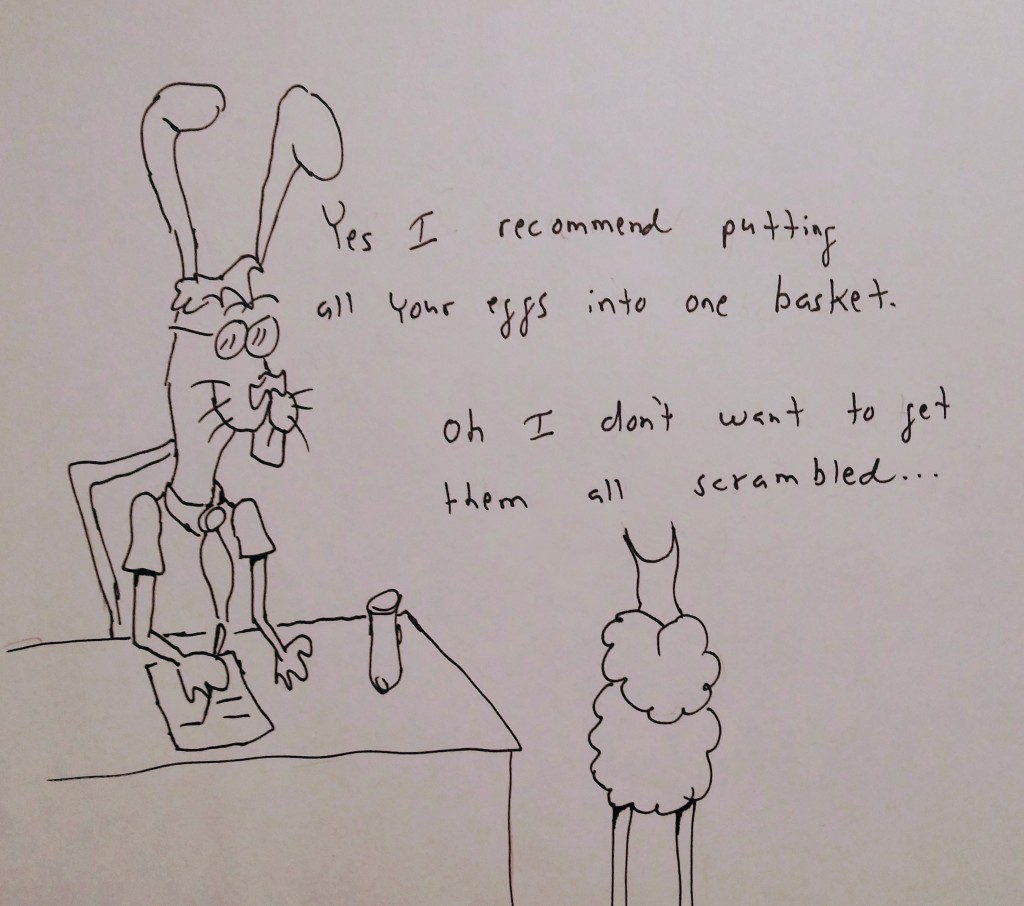 Yes I recommend putting
all your eggs into one basket.
Oh I don't want to get
them all scrambled...